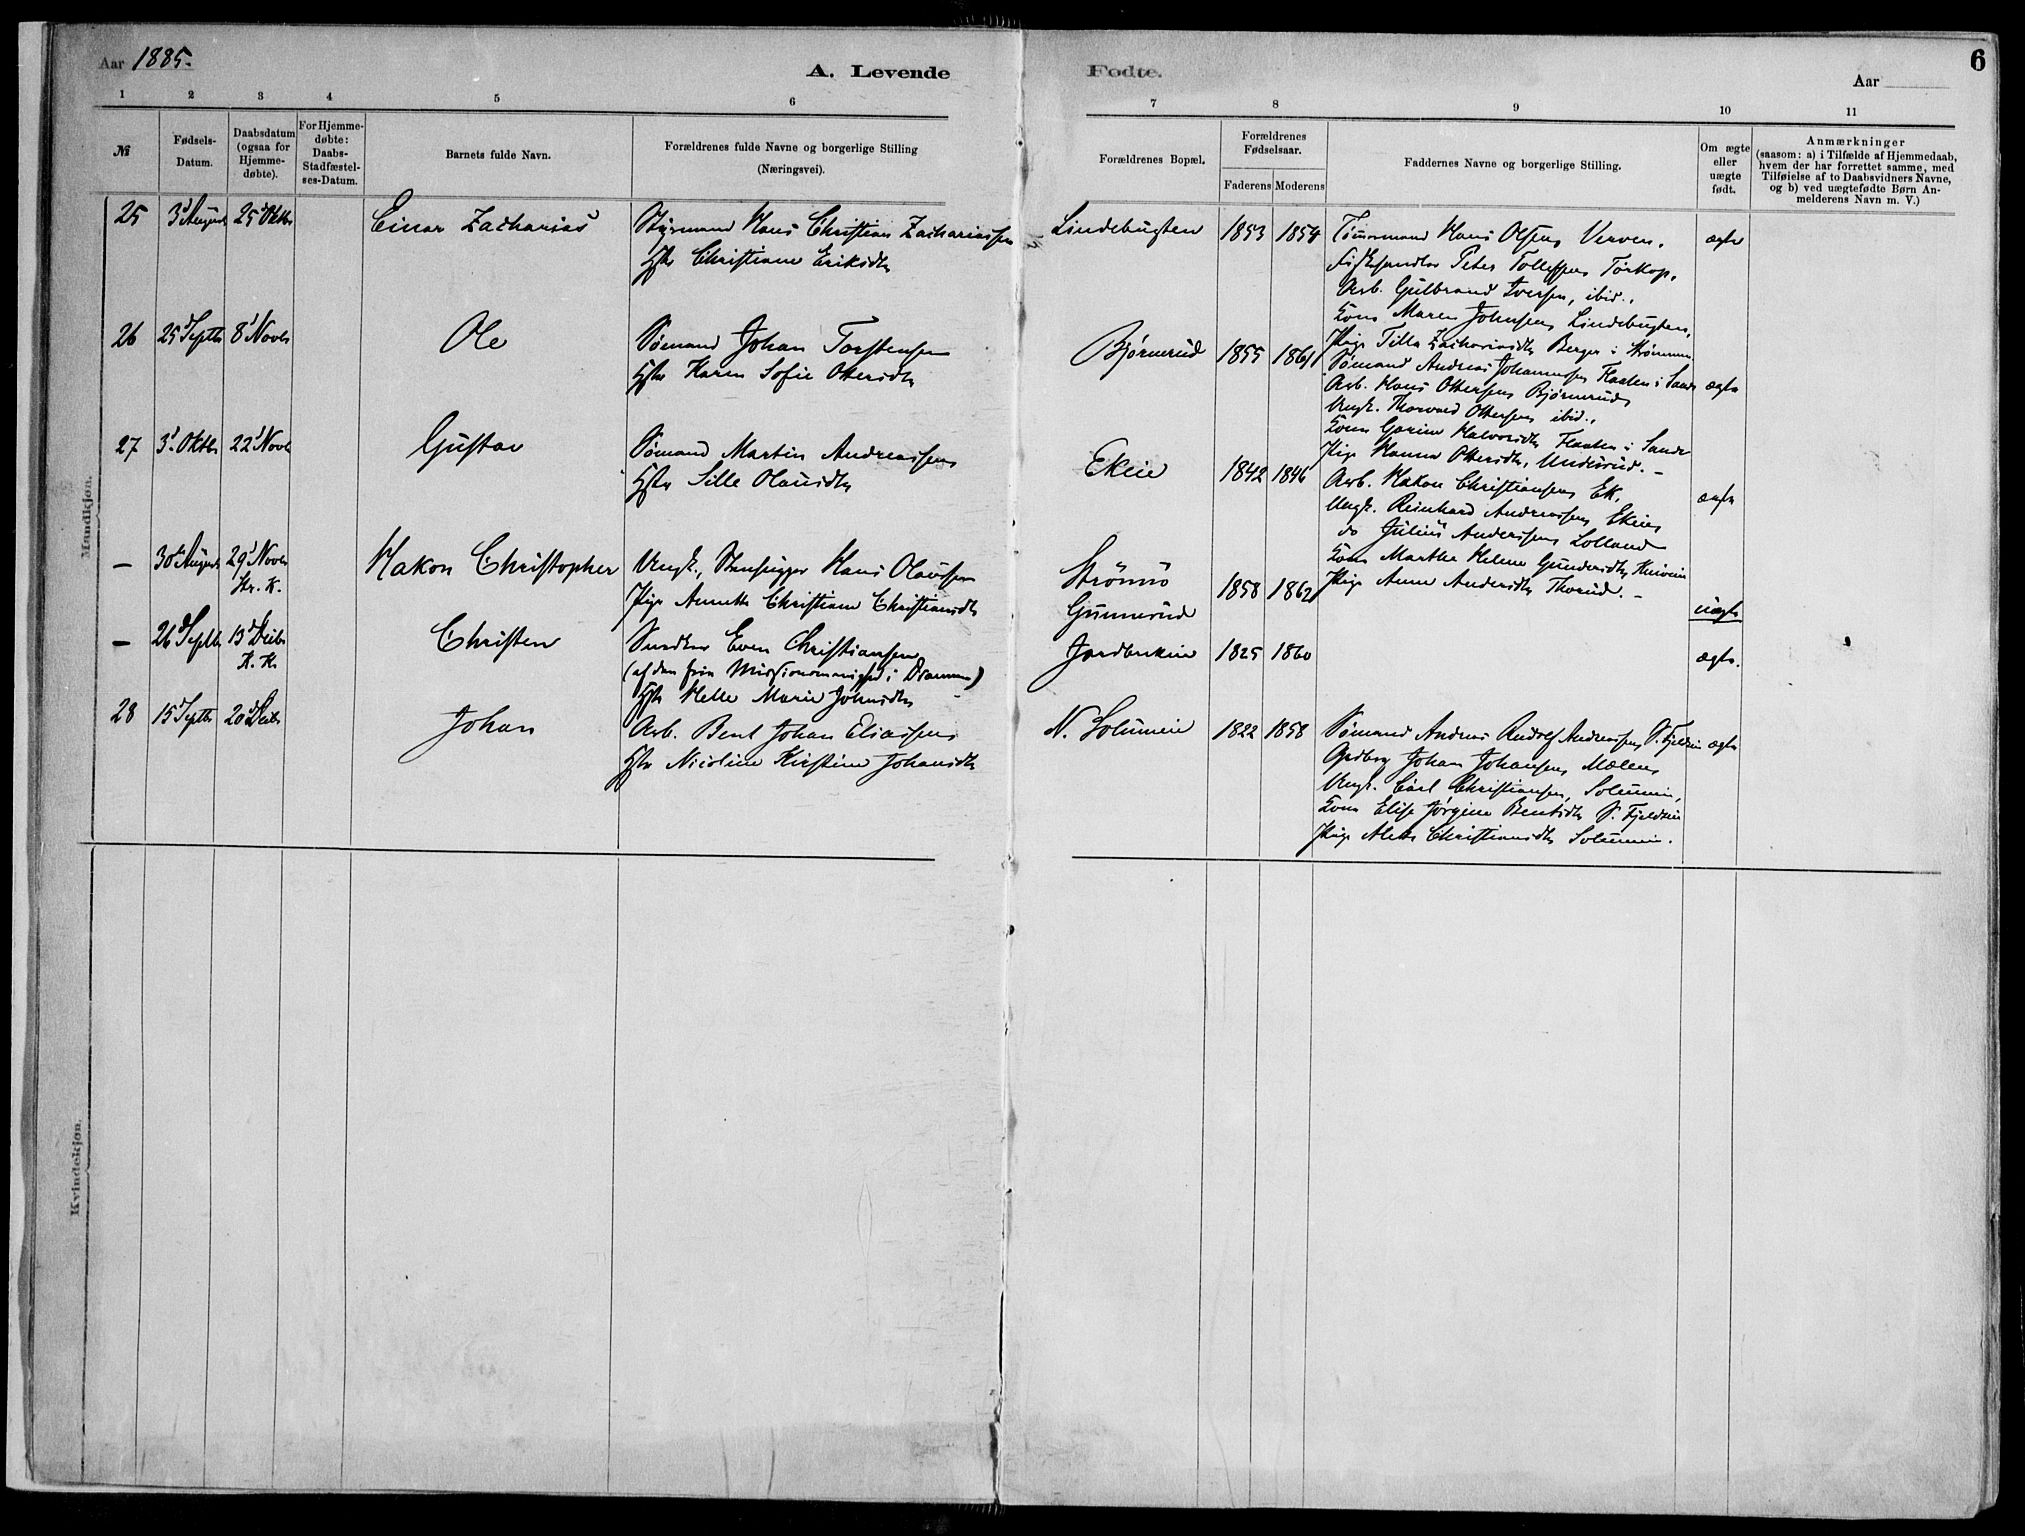 Aar 1885.
A. Levende
Fødte.
Aar
6
1 2 3 4 5 6 7 8 9 10 11
№
Fødsels-
Datum.
Daabsdatum
(ogsaa for
Hjemme-
døbte).
For Hjemme-
døbte:
Daabs-
Stadfæstel-
ses-Datum.
Barnets fulde Navn.
Forældrenes fulde Navne og borgerlige Stilling
(Næringsvei).
Forældrenes Bopæl.
Forældrenes
Fødselsaar.
Faderens Moderens
Faddernes Navne og borgerlige Stilling.
Om ægte
eller
uægte
født.
Anmærkninger
(saasom: a) i Tilfælde af Hjemmedaab,
hvem der har forrettet samme, med
Tilføielse af to Daabsvidners Navne,
og b) ved uægtefødte Børn An-
melderens Navn m. V.)
Mandkjøn.
25 3d August 25d Oktbr Einar Zacharias
Styrmand Hans Christian Zachariassen
Hstr Christiane Eriksdtr
Lindebugten 1853 1854
Tømmermand Hans Olsen, Verven.
Fiskehandler Peter Tollefsen Tørkop.
Arb. Gulbrand Iversen, ibid.,
Kone Maren Johnsen Lindebugten,
Pige Tilla Zachariasdtr Berger i Strømmen
ægte
26 25d Septbr 8d Novbr Ole
Sømand Johan Torstensen
Hstr Karen Sofie Ottersdtr
Bjørnerud 1855 1861
Sømand Andreas Johannessen Haaten i Sande
Arb. Hans Ottersen Bjørnerud
Ungk. Thorvald Ottersen ibid.,
Kone Gorine Halvorsdtr Haaten i Sande
Pige Hanna Ottersdtr, Underrud. –
ægte
27 3d Oktbr 22d Novbr Gustav
Sømand Martin Andreassen
Hstr Sille Olausdtr
Ekeie 1842 1846
Arb. Hakon Christiansen Ek,
Ungk. Reinhard Andreassen Ekeie
do Julius Anderssen Lolland
Kone Marthe Helene Gundersdtr
Pige Anne Andersdtr Thorud. –
ægte
– 30te August 29d Novbr
Kr. K.
Hakon Christopher
Ungk., Stenhugger Hans Olaussen
Pige Annette Christiane Christiansdtr
Strømsø
Gunnerud
1858 1862
uægte
– 26d Septbr 13d Decbr
K. K.
Christen
Snedker Even Christiansen
(af den frie Missionsmenighed i Drammen)
Hstr Helle Marie Johnsdtr
Jordbrekeie 1825 1860
ægte.
28 15d Septbr 20d Decbr Johan
Arb. Bent Johan Eliassen
Hstr Nicoline Kirstine Johansdtr
N. Solumeie 1822 1858
Sømand Andreas Rudolf Andreassen S. Fjeldeie
Grdbrg Johan Johansen Mælen
Ungk. Carl Christiansen, Solumeie,
Kone Elise Jørgine Bentsdtr S. Fjeldeie
Pige Alette Christiansdtr Solumeie.
ægte
Kvindekjøn.